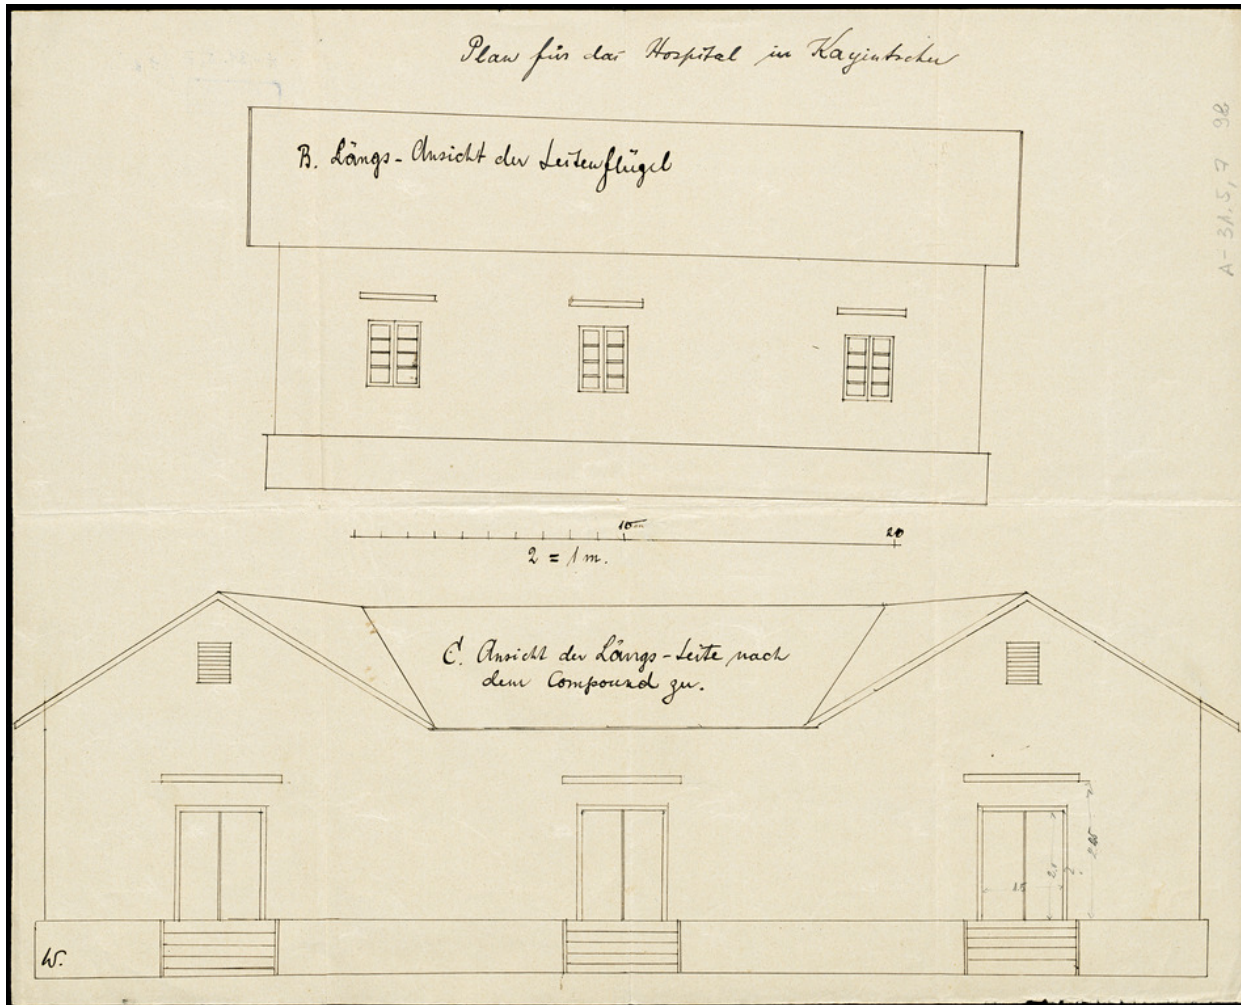 Plan für das Hospital in Kayintschu
A-31.5,7 98
B. Längs-Ansicht der Seitenflügel
10 m
20
2 = 1 m.
C. Ansicht der Längs-Seite nach
dem Compound zu.
2.1
W.